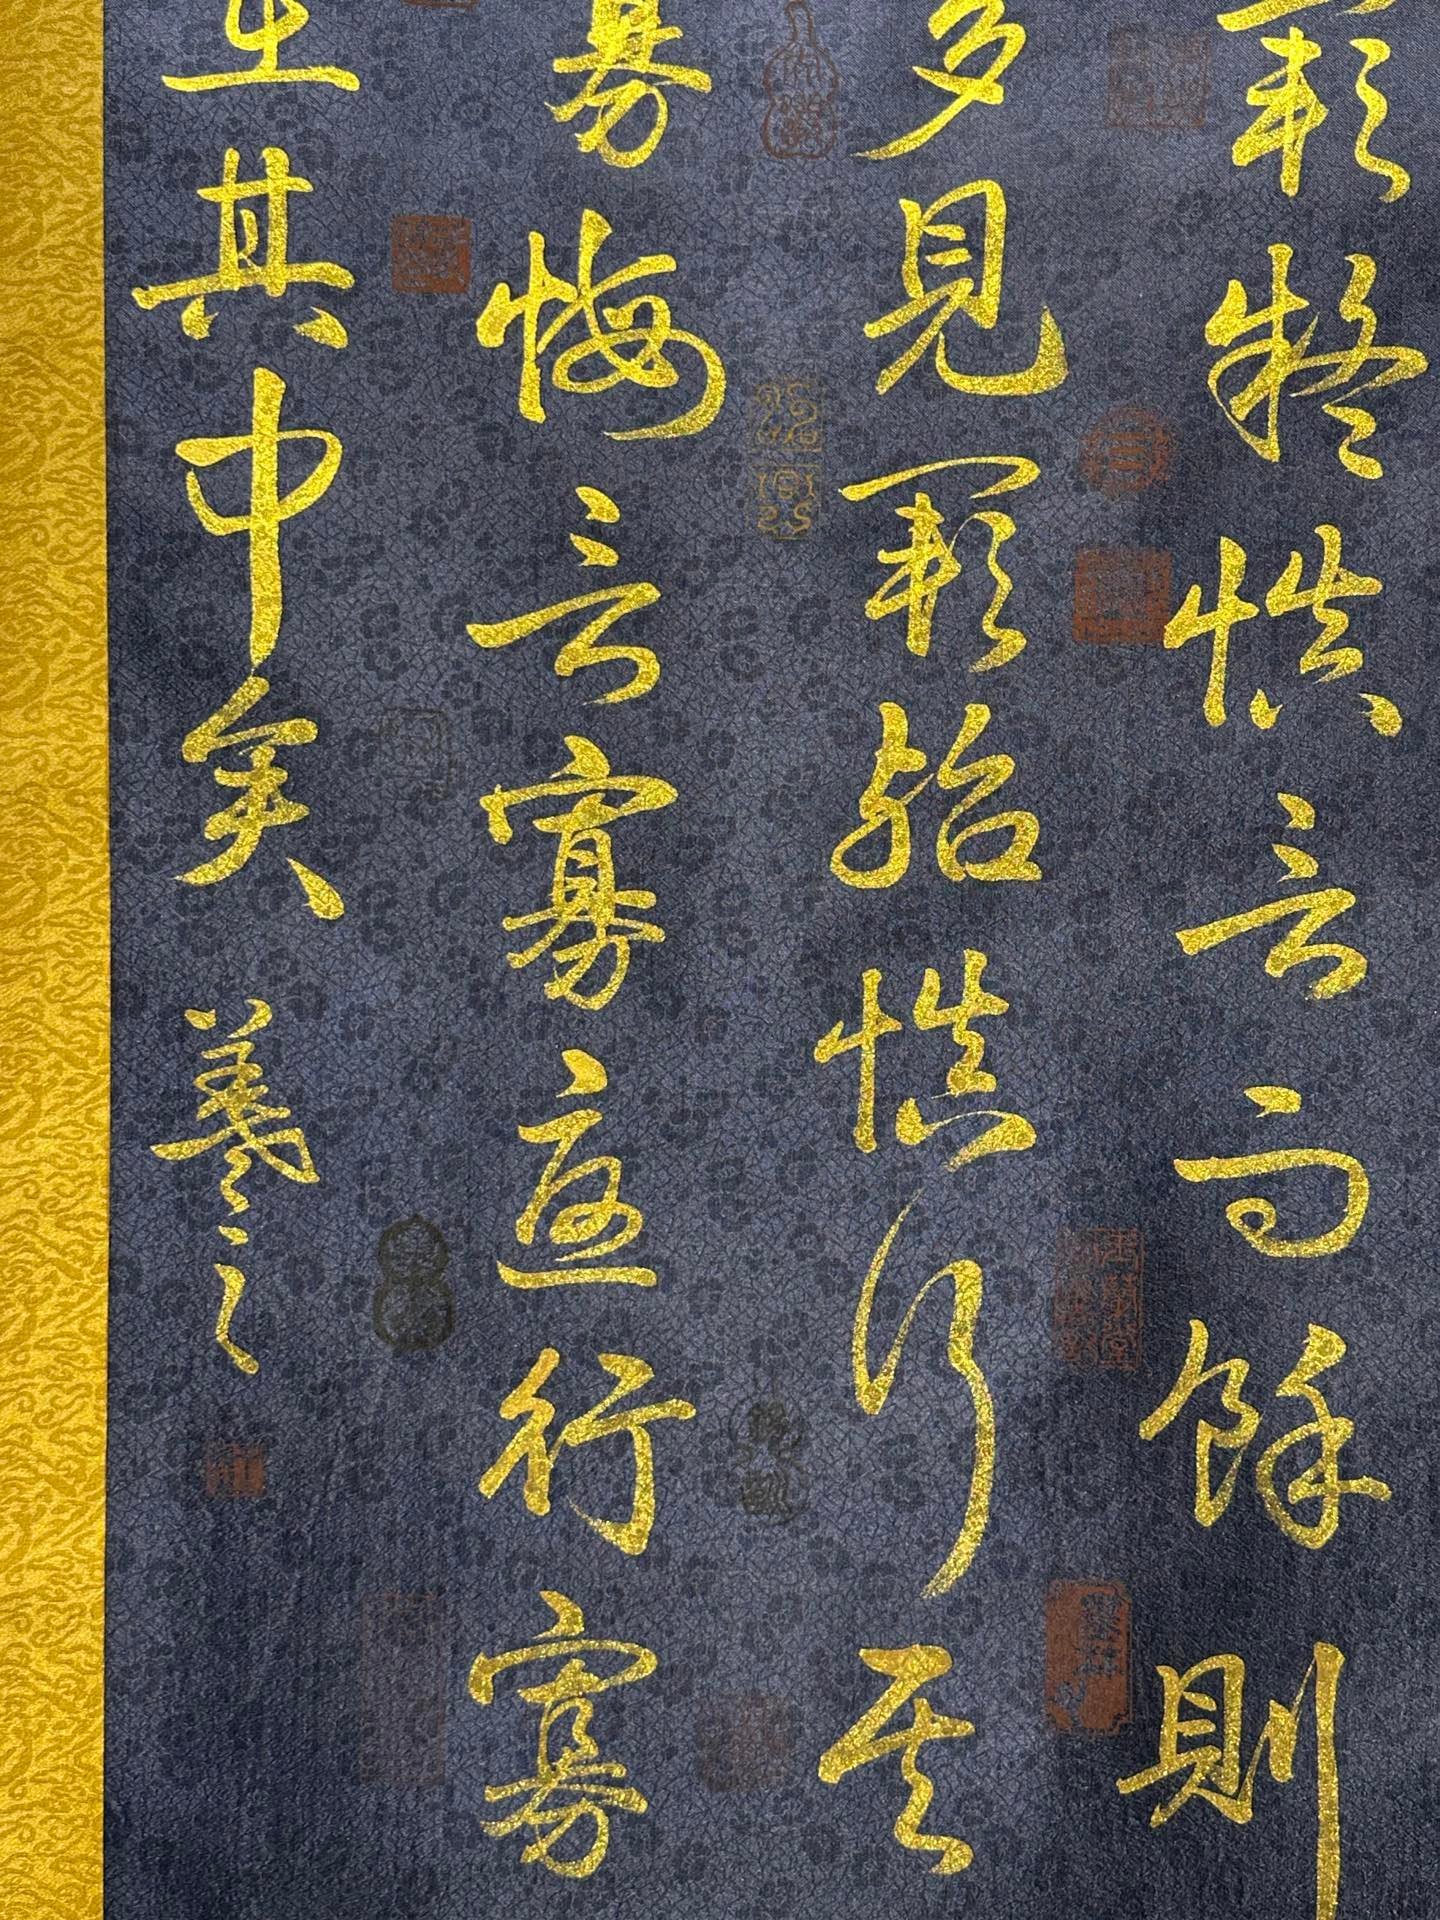 闕疑慎言其餘則
多見闕殆慎行其
寡悔言寡行寡
在其中矣羲之